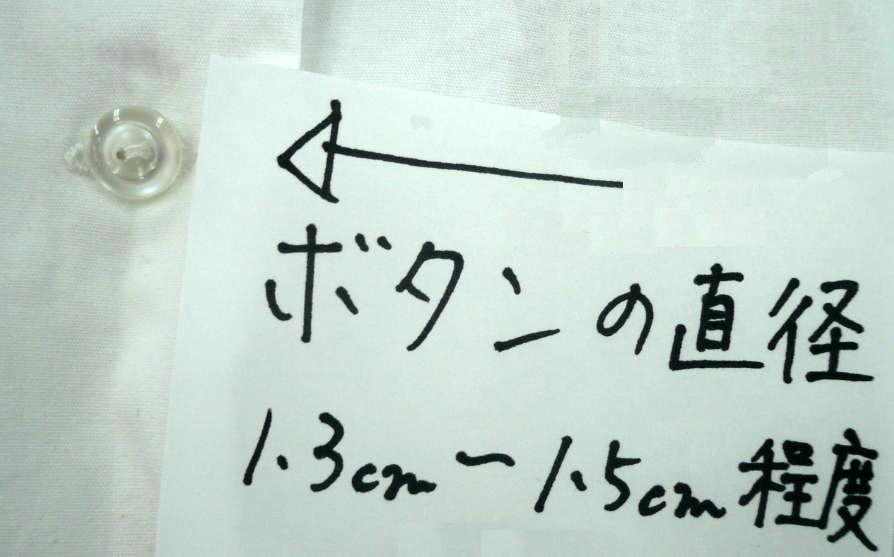 ボタンの直径
1.3cm~1.5cm程度